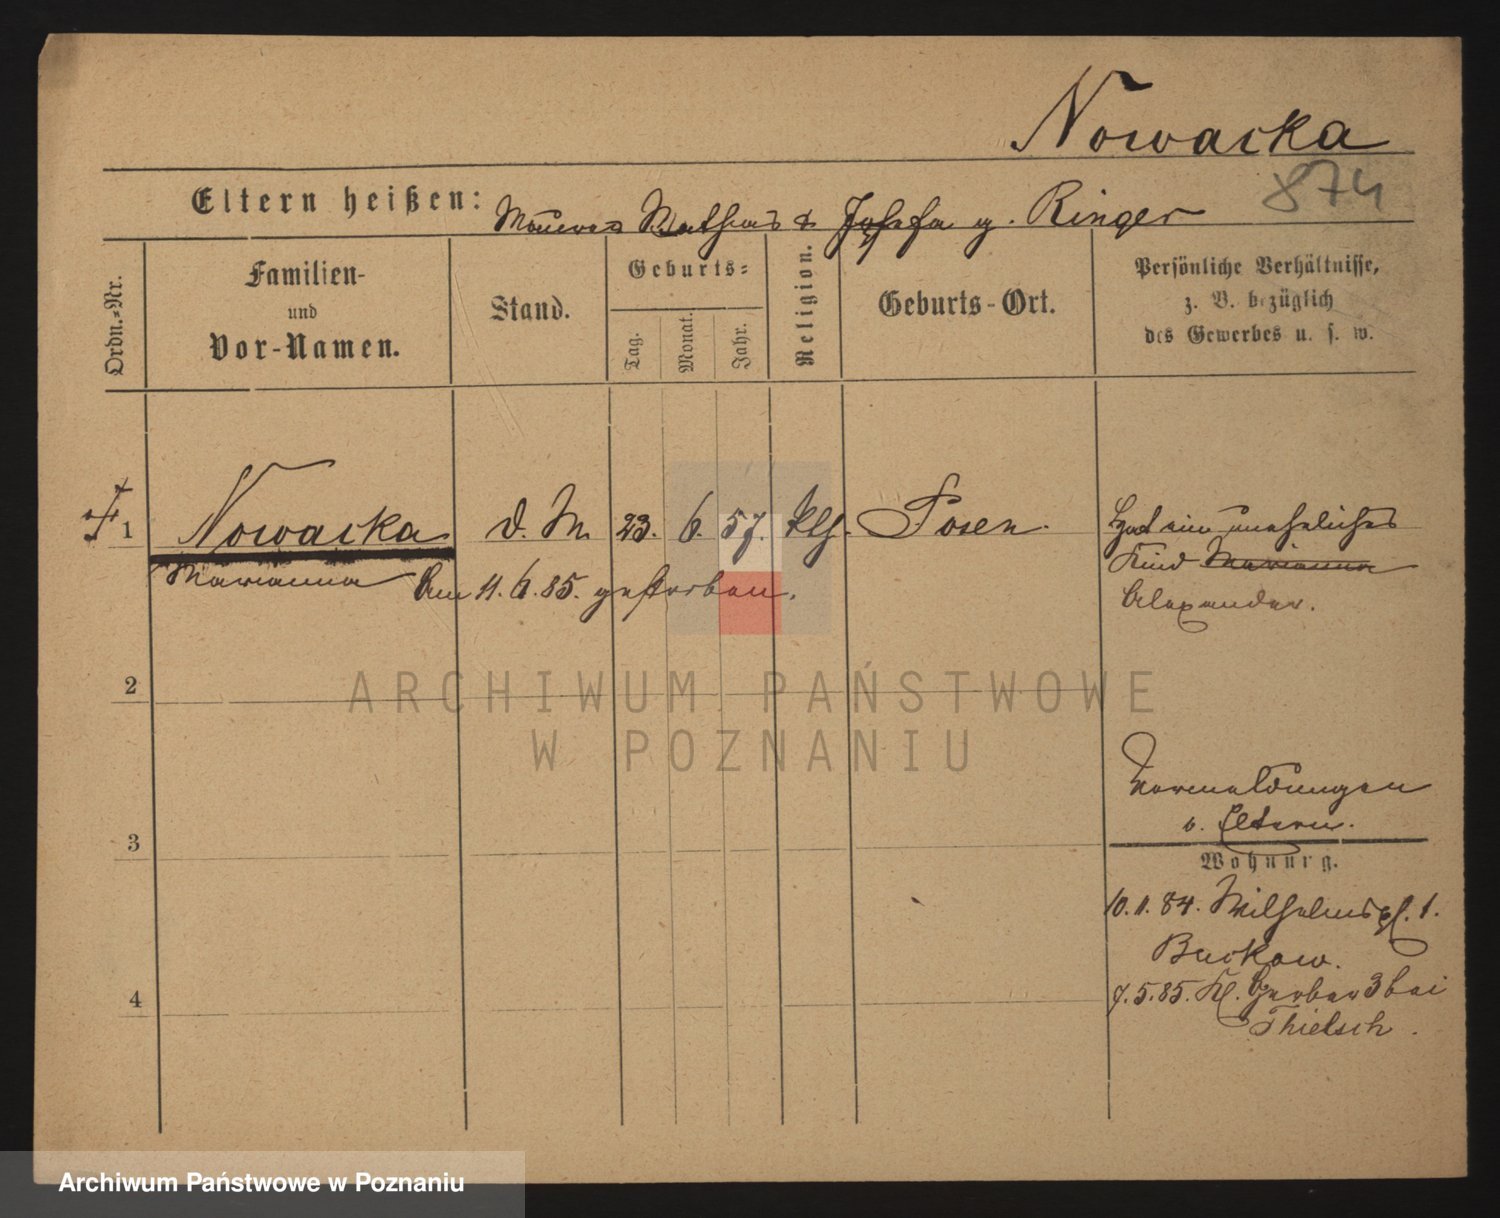 Nowacka
874
Eltern heißen: Maurer Mathias & Josefa g. Ringer
Ordn.=Nr.
Familien-
und
Vor-Namen.
Stand.
Geburts=
Tag.
Monat.
Jahr.
Religion.
Geburts-Ort.
Persönliche Verhältnisse,
z. B. bezüglich
des Gewerbes u. s. w.
1 Nowacka d. M. 23. 6. 57. kth. Posen.
Marianna Am 11. 6. 85. gestorben.
Hat ein uneheliches
Kind Marianna
Alexander.
2
3
4
Vermeldungen
b. Eltern.
Wohnung.
10.11.84. Wilhelmspl. 1.
Buckow.
7.5.85. Kl. Gerber 3 bei
Thielsch.
ARCHIWUM PAŃSTWOWE
W POZNANIU
Archiwum Państwowe w Poznaniu